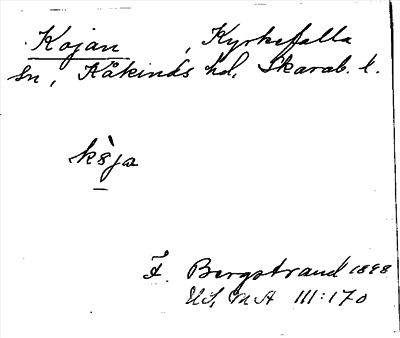 Kojan, Kyrkefalla
sn, Kåkinds hd, Skarab. l.
kòja
F. Bergstrand 1898
US, MA III:170